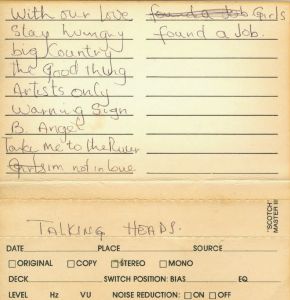 With our love
Stay hungry
big Country
the Good Thing
Artists only
Warning Sign
B. Angel
Take me to the River
Girls im not in love
found a Job Girls
found a Job.
TALKING HEADS.
"SCOTCH"
MASTER II
DATE PLACE SOURCE
ORIGINAL COPY STEREO MONO
DECK SWITCH POSITION: BIAS EQ
LEVEL Hz VU NOISE REDUCTION: ON OFF